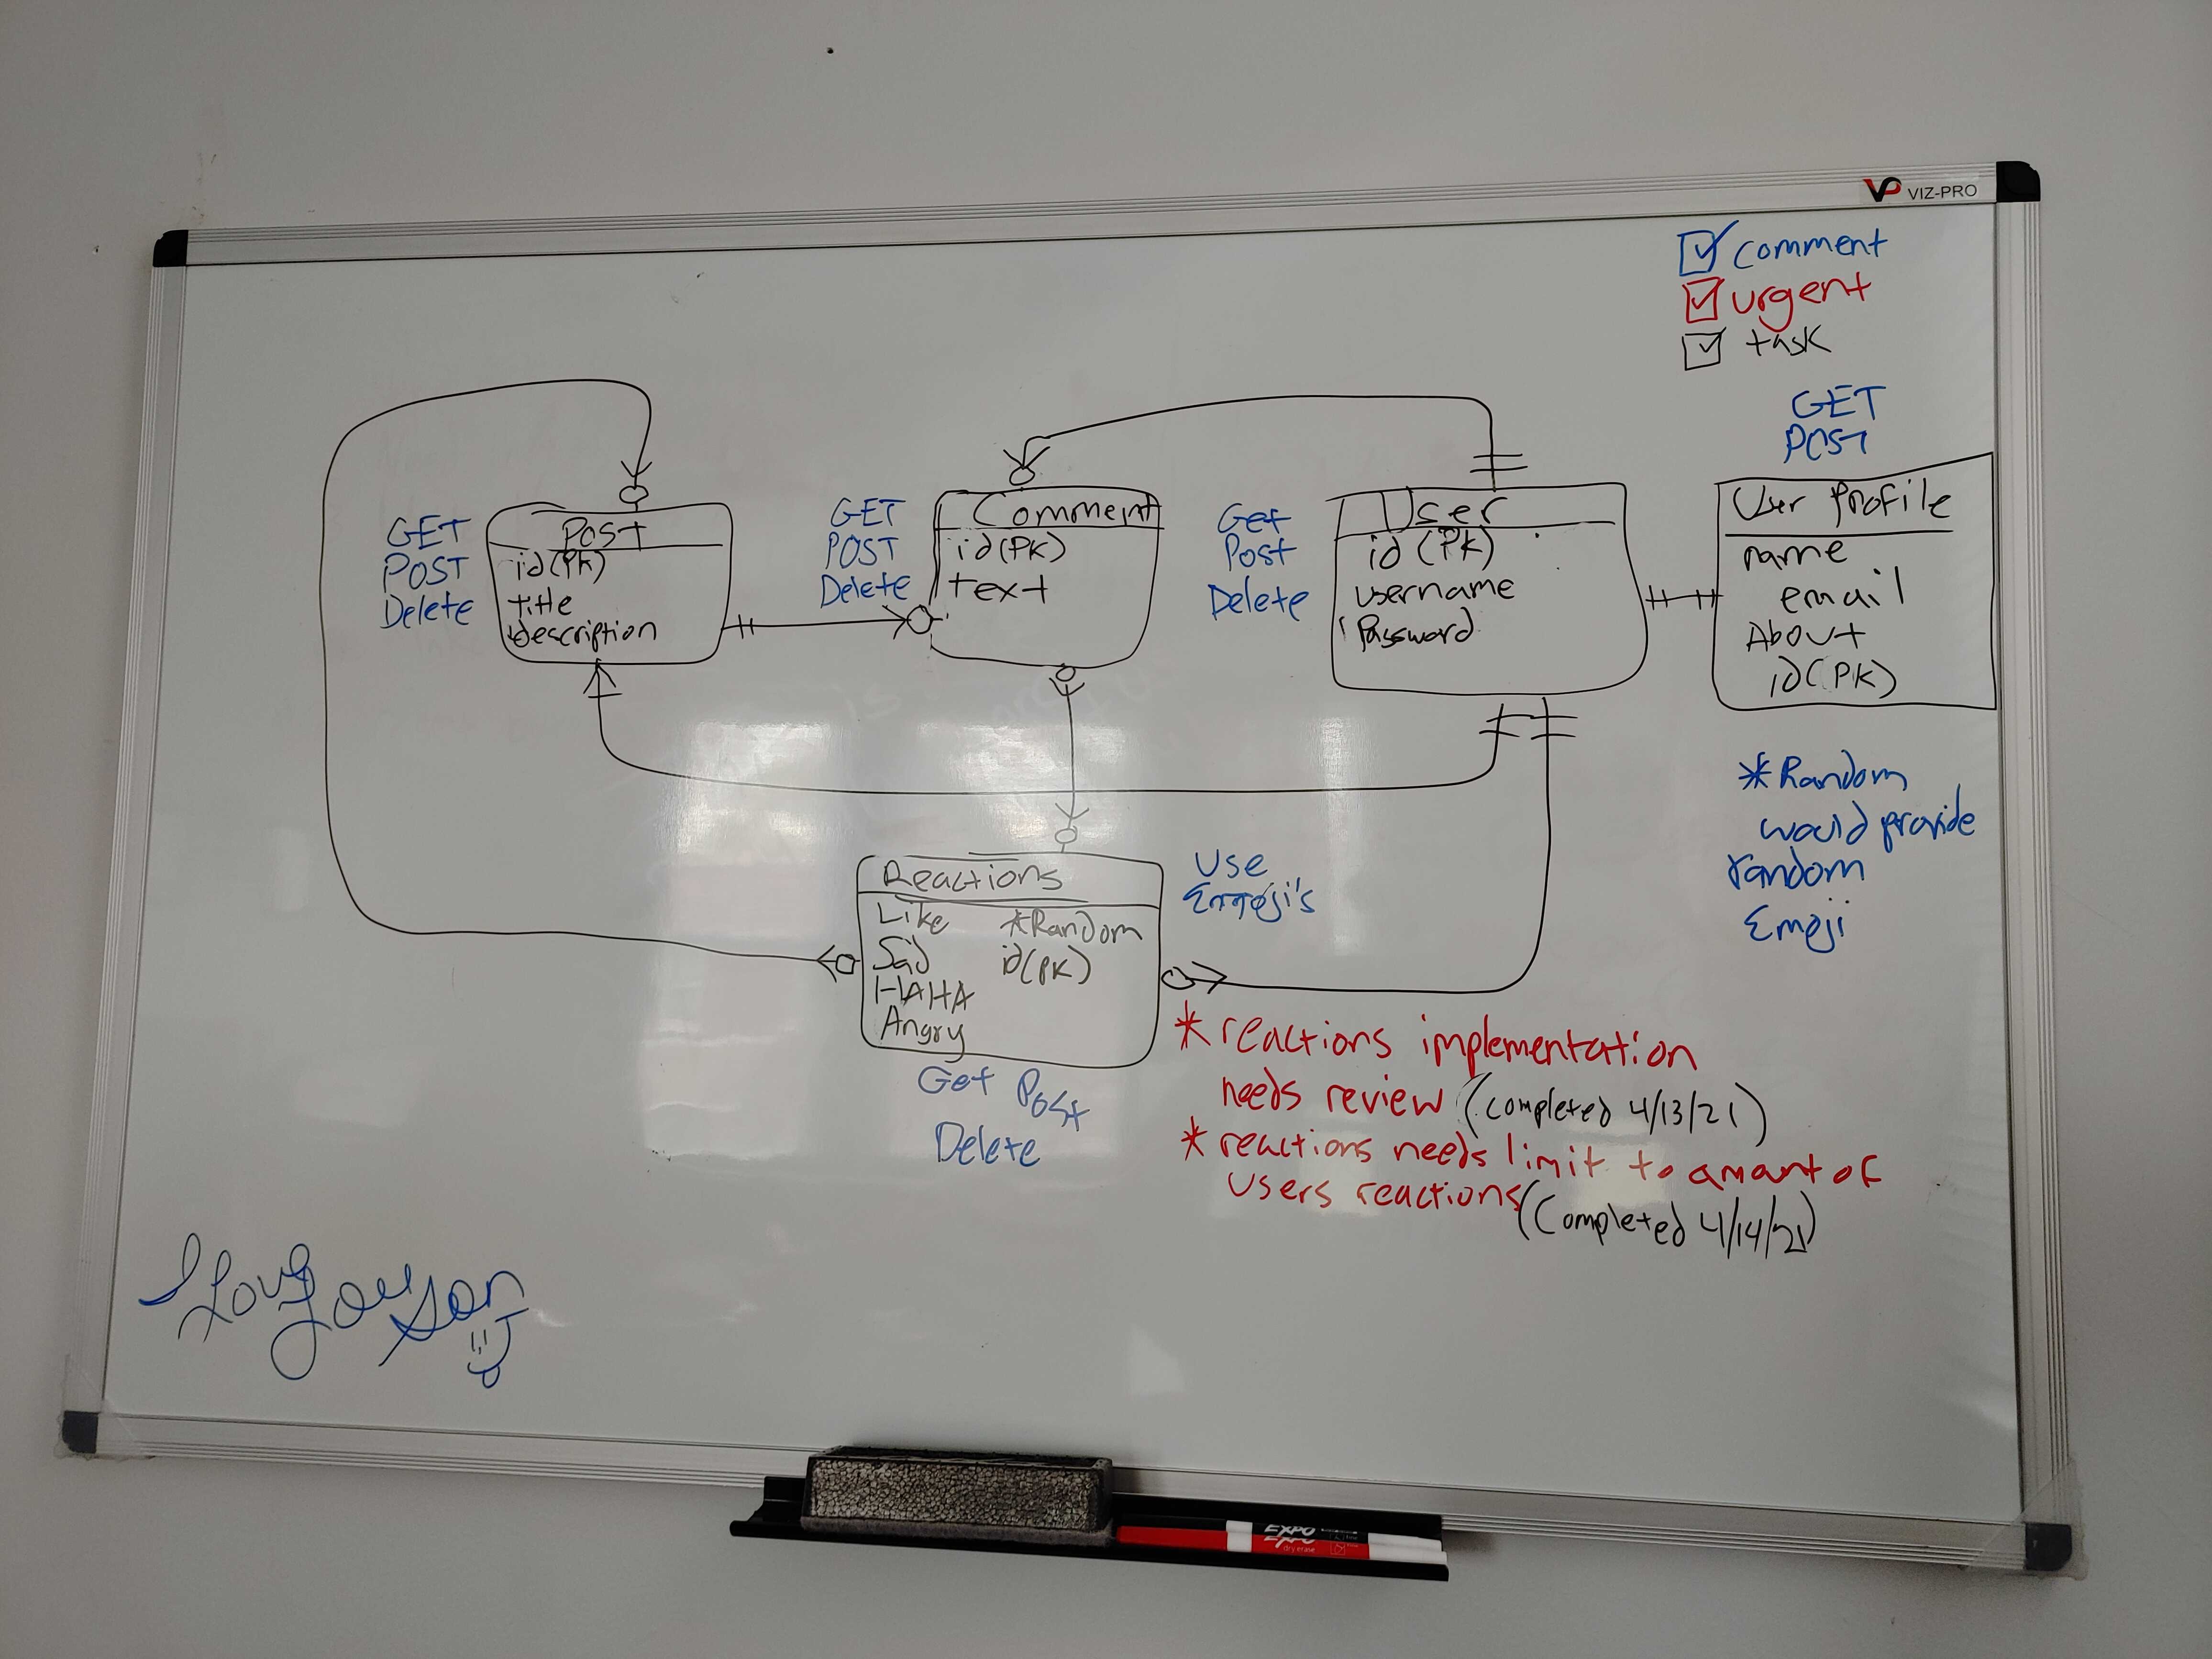 VP VIZ-PRO
comment
urgent
task
GET
POST
Delete
Post
id(PK)
title
description
GET
POST
Delete
Comment
id(PK)
text
Get
Post
Delete
User
id(PK)
username
Password
GET
POST
User Profile
name
email
About
id(PK)
*Random
would provide
random
Emoji
Reactions
Like *Random
Sad id(PK)
HAHA
Angry
Use
Emoji's
Get Post
Delete
*reactions implementation
needs review (completed 4/13/21)
*reactions needs limit to amount of
users reactions (Completed 4/14/21)
I Love You Son
EXPO
EXPO
dry erase